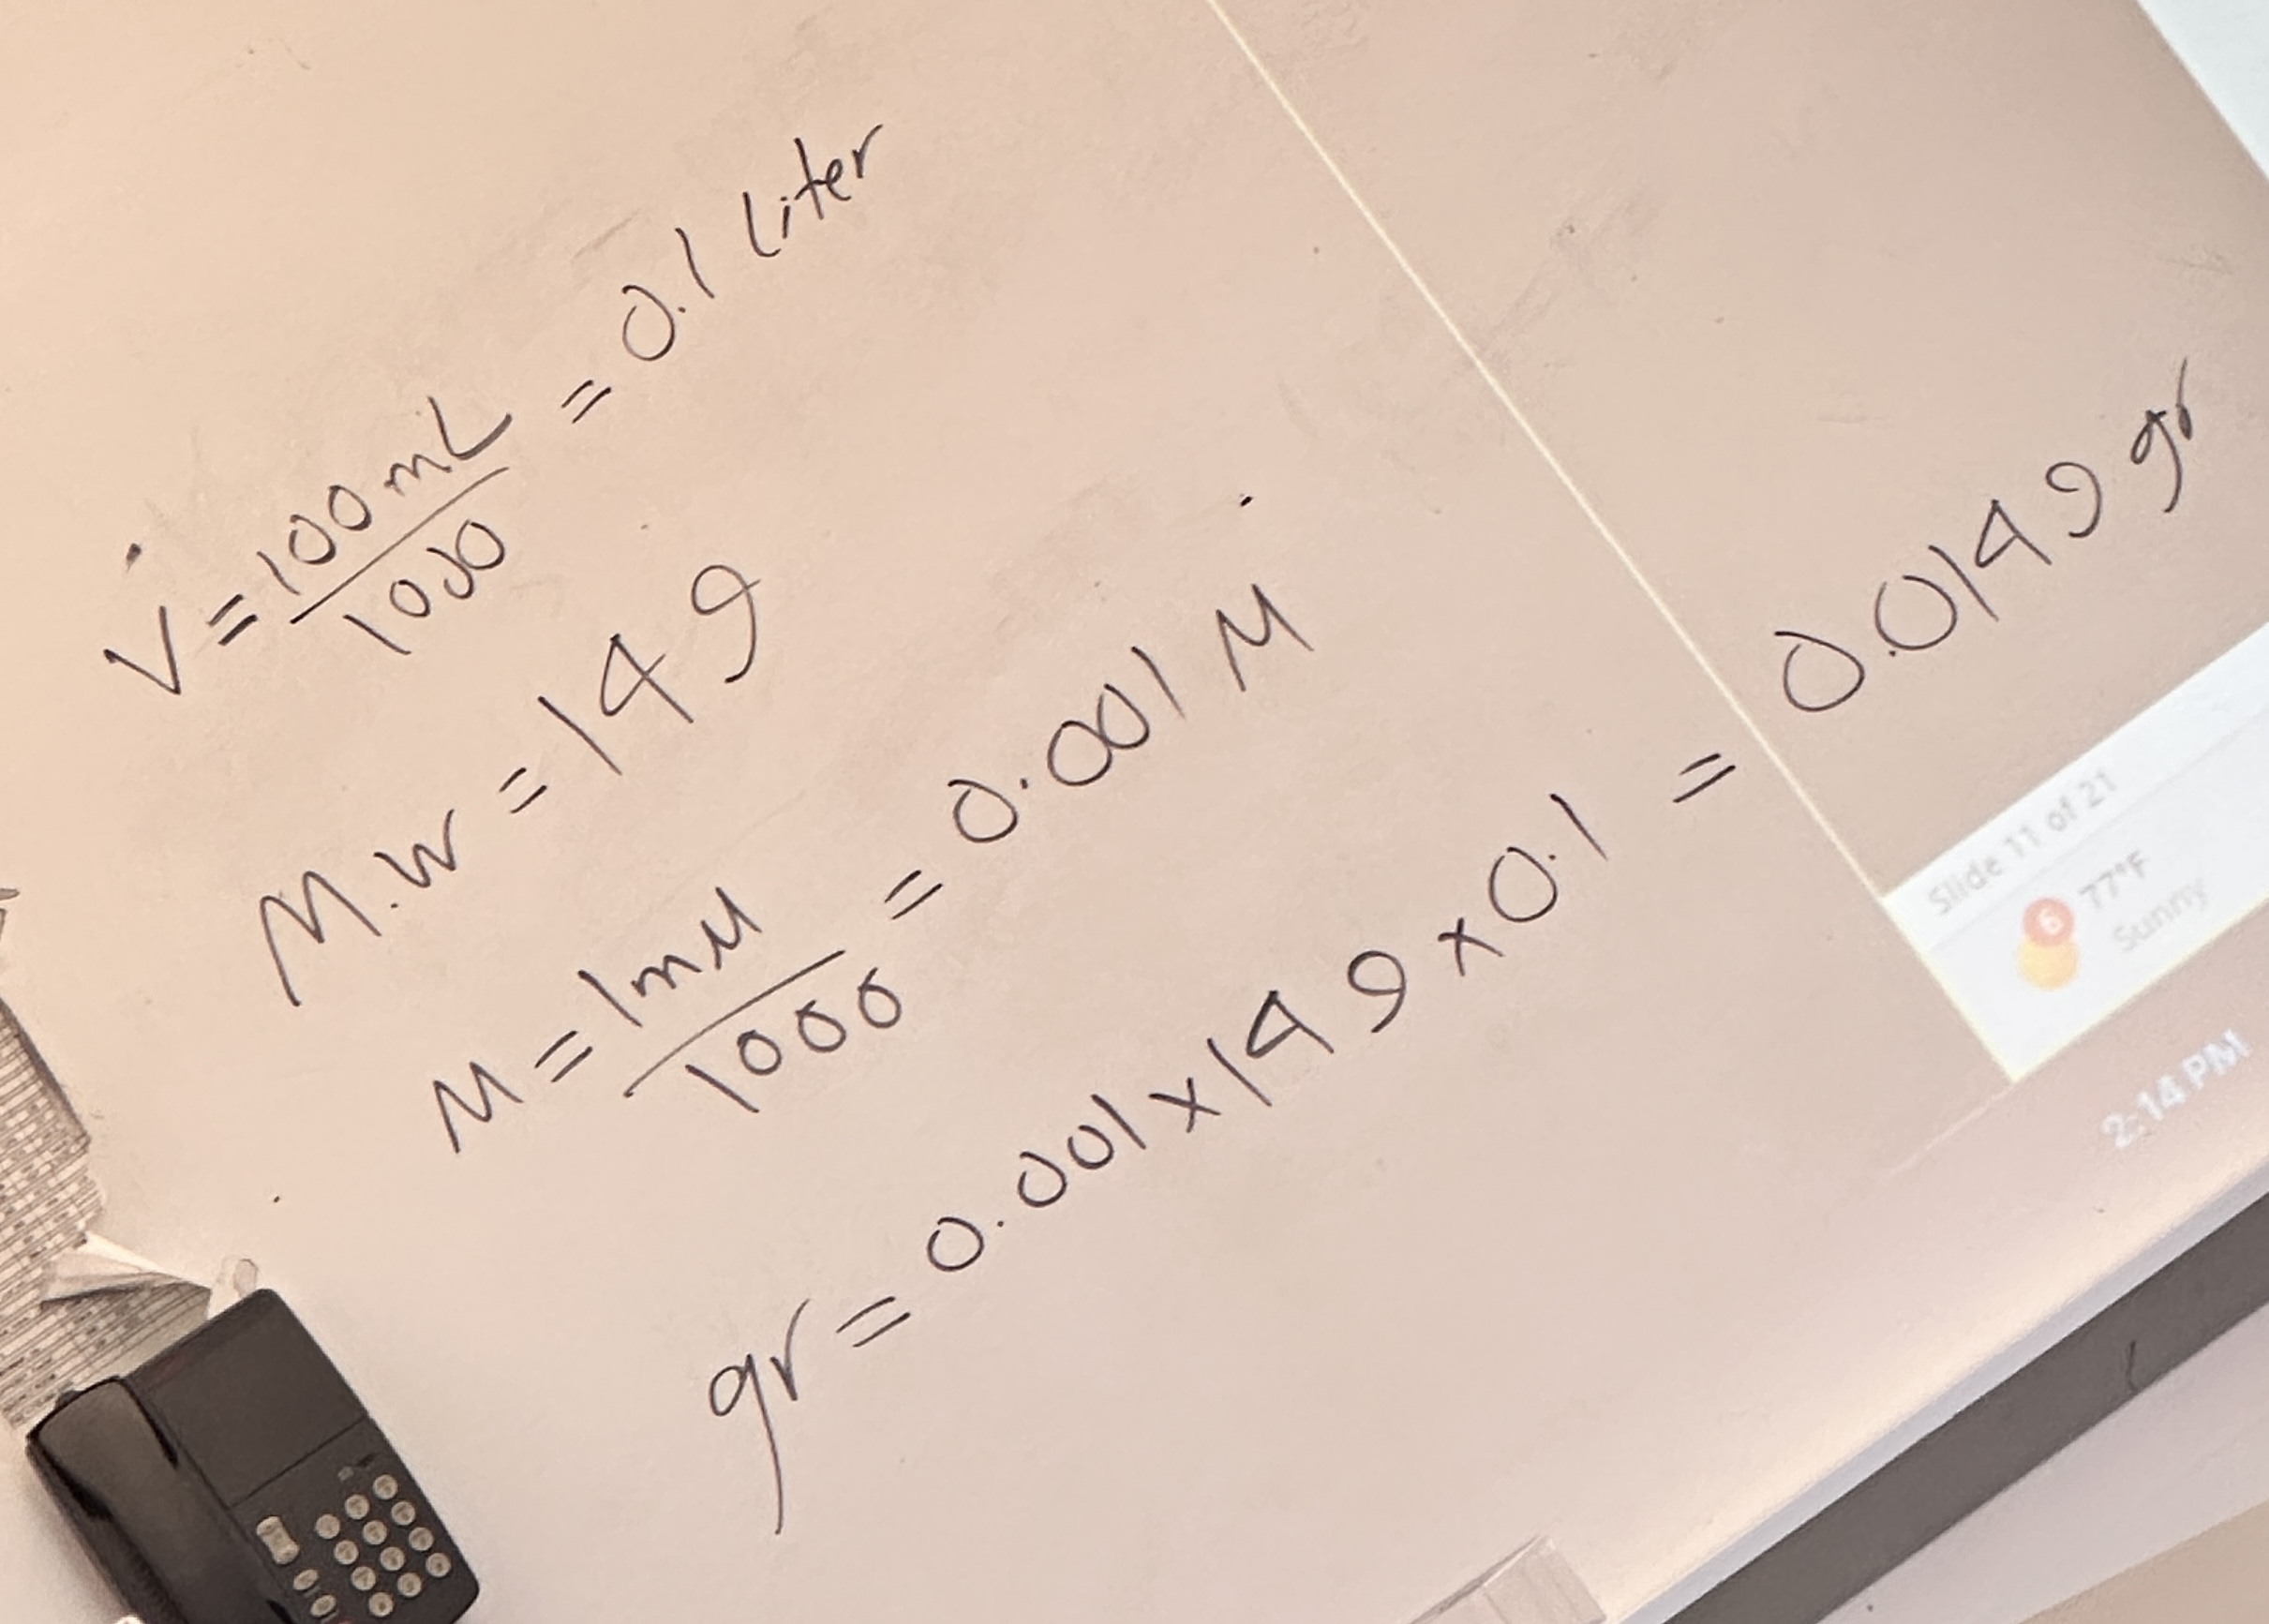 V = 100 mL / 1000 = 0.1 Liter
M.W = 149
M = 1mM / 1000 = 0.001 M
gr = 0.001 x 149 x 0.1 = 0.0149 gr
Slide 11 of 21
6
77°F
Sunny
2:14 PM